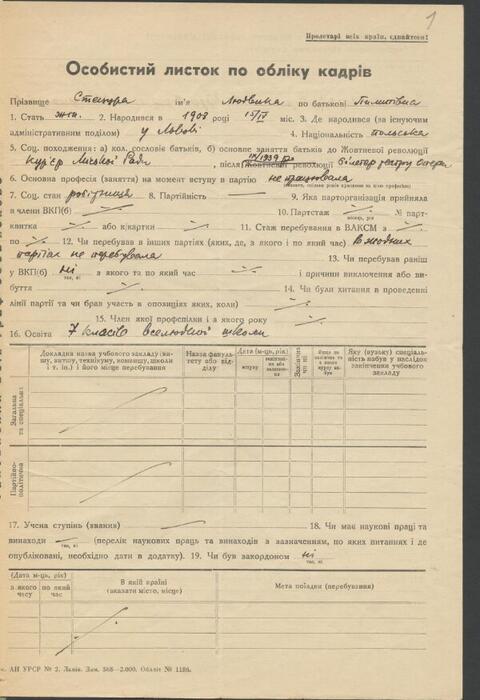 1
Пролетарі всіх країн, єднайтеся!
Особистий листок по обліку кадрів
Прізвище ім'я Людвика по батькові
1. Стать жін. 2. Народився в 1908 році 15/IV міс. 3. Де народився (за існуючим
адміністративним поділом) у Львові 4. Національність польська
5. Соц. походження: а) кол. сословіє батьків, б) основне заняття батьків до Жовтневої революції
Кур'єр Міської Ради, після Жовтневої революції білетер театру Опери
IX/1939 р.
6. Основна професія (заняття) на момент вступу в партію не працювала
7. Соц. стан робітниця 8. Партійність 9. Яка парторганізація прийняла
в члени ВКП(б) 10. Партстаж № парт-
місяць, рік
квитка або к/картки 11. Стаж перебування в ВЛКСМ з
по 12. Чи перебував в інших партіях (яких, де, з якого і по який час) в жодних
партіях не перебувала 13. Чи перебував раніш
у ВКП(б) ні з якого та по який час і причини виключення або ви-
так, ні
буття 14. Чи були хитання в проведенні
лінії партії та чи брав участь в опозиціях яких, коли)
15. Член якої профспілки і з якого року
16. Освіта 7 класів вселюдної школи
Докладна назва учбового закладу (ви-
шу, втузу, технікуму, комвишу, школи
і т. ін.) і його місце перебування
Назва факуль-
тету або від-
ділу
Дата (м-ць, рік)
вступу
Закінчив чи ні
Яку (вузьку) спеціаль-
ність набув у наслідок
закінчення учбового
закладу
Загальна
та спеціальна
Партійно-
політична
17. Учена ступінь (звання) 18. Чи має наукові праці та
винаходи (перелік наукових праць та винаходів з зазначенням, по яких питаннях і де
так, ні
опубліковані, необхідно дати в додатку). 19. Чи був закордоном ні
так, ні
(Дата м-ць, рік)
з якого
часу
по який
час
В якій країні
(вказати місто, місце)
Мета поїздки (перебування)
АН УРСР № 2. Львів. Зам. 568—2.000. Обліт № 1186.